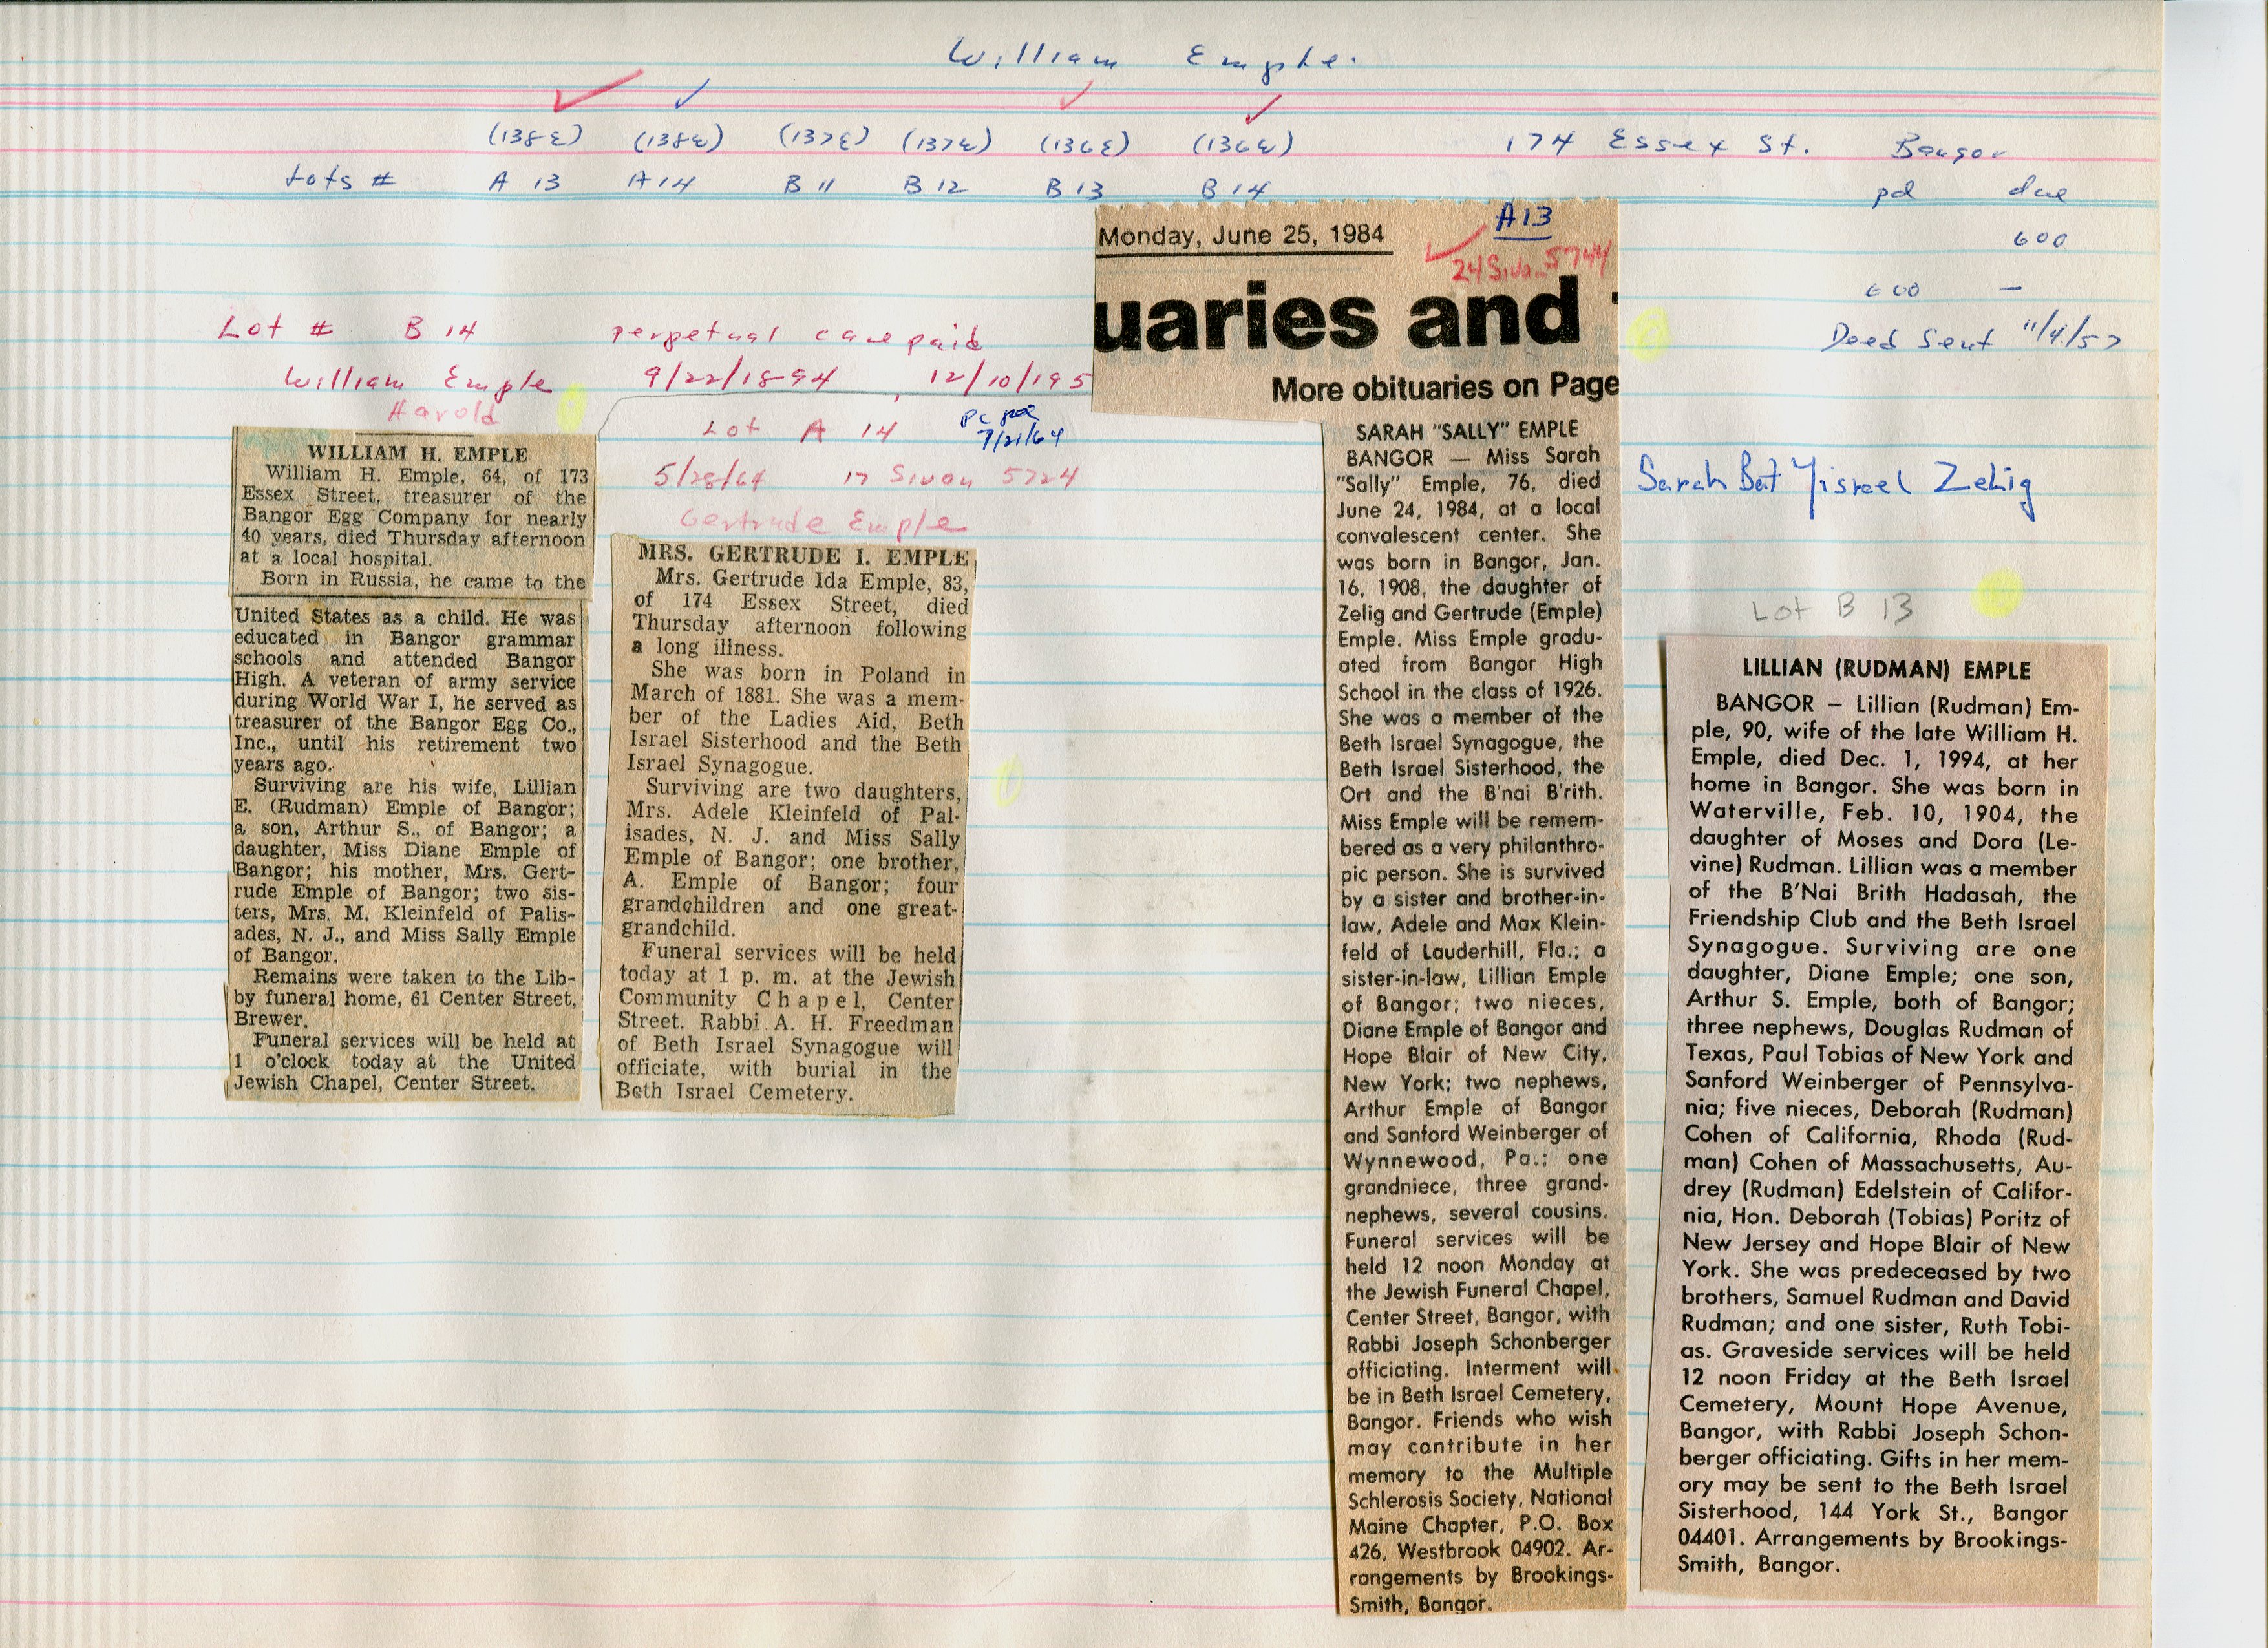 William Emple.
(138E) (138W) (137E) (137W) (136E) (136W) 174 Essex St. Bangor
Lots # A 13 A 14 B 11 B 12 B 13 B 14 pd due
600
600 —
Deed Sent 11/4/57
Lot # B 14 perpetual care paid
William Emple 9/22/1894 12/10/195
Harold
Lot A 14 pc pd
7/21/64
5/28/64 17 Sivan 5724
Gertrude Emple
WILLIAM H. EMPLE
William H. Emple, 64, of 173
Essex Street, treasurer of the
Bangor Egg Company for nearly
40 years, died Thursday afternoon
at a local hospital.
Born in Russia, he came to the
United States as a child. He was
educated in Bangor grammar
schools and attended Bangor
High. A veteran of army service
during World War I, he served as
treasurer of the Bangor Egg Co.,
Inc., until his retirement two
years ago.
Surviving are his wife, Lillian
E. (Rudman) Emple of Bangor;
a son, Arthur S., of Bangor; a
daughter, Miss Diane Emple of
Bangor; his mother, Mrs. Gert-
rude Emple of Bangor; two sis-
ters, Mrs. M. Kleinfeld of Palis-
ades, N. J., and Miss Sally Emple
of Bangor.
Remains were taken to the Lib-
by funeral home, 61 Center Street,
Brewer.
Funeral services will be held at
1 o'clock today at the United
Jewish Chapel, Center Street.
MRS. GERTRUDE I. EMPLE
Mrs. Gertrude Ida Emple, 83,
of 174 Essex Street, died
Thursday afternoon following
a long illness.
She was born in Poland in
March of 1881. She was a mem-
ber of the Ladies Aid, Beth
Israel Sisterhood and the Beth
Israel Synagogue.
Surviving are two daughters,
Mrs. Adele Kleinfeld of Pal-
isades, N. J. and Miss Sally
Emple of Bangor; one brother,
A. Emple of Bangor; four
grandchildren and one great-
grandchild.
Funeral services will be held
today at 1 p. m. at the Jewish
Community Chapel, Center
Street. Rabbi A. H. Freedman
of Beth Israel Synagogue will
officiate, with burial in the
Beth Israel Cemetery.
A13
Monday, June 25, 1984
24 Sivan 5744
uaries and
More obituaries on Page
SARAH "SALLY" EMPLE
BANGOR — Miss Sarah
"Sally" Emple, 76, died
June 24, 1984, at a local
convalescent center. She
was born in Bangor, Jan.
16, 1908, the daughter of
Zelig and Gertrude (Emple)
Emple. Miss Emple gradu-
ated from Bangor High
School in the class of 1926.
She was a member of the
Beth Israel Synagogue, the
Beth Israel Sisterhood, the
Ort and the B'nai B'rith.
Miss Emple will be remem-
bered as a very philanthro-
pic person. She is survived
by a sister and brother-in-
law, Adele and Max Klein-
feld of Lauderhill, Fla.; a
sister-in-law, Lillian Emple
of Bangor; two nieces,
Diane Emple of Bangor and
Hope Blair of New City,
New York; two nephews,
Arthur Emple of Bangor
and Sanford Weinberger of
Wynnewood, Pa.; one
grandniece, three grand-
nephews, several cousins.
Funeral services will be
held 12 noon Monday at
the Jewish Funeral Chapel,
Center Street, Bangor, with
Rabbi Joseph Schonberger
officiating. Interment will
be in Beth Israel Cemetery,
Bangor. Friends who wish
may contribute in her
memory to the Multiple
Schlerosis Society, National
Maine Chapter, P.O. Box
426, Westbrook 04902. Ar-
rangements by Brookings-
Smith, Bangor.
Sarah Bat Yisrael Zelig
Lot B 13
LILLIAN (RUDMAN) EMPLE
BANGOR – Lillian (Rudman) Em-
ple, 90, wife of the late William H.
Emple, died Dec. 1, 1994, at her
home in Bangor. She was born in
Waterville, Feb. 10, 1904, the
daughter of Moses and Dora (Le-
vine) Rudman. Lillian was a member
of the B'Nai Brith Hadasah, the
Friendship Club and the Beth Israel
Synagogue. Surviving are one
daughter, Diane Emple; one son,
Arthur S. Emple, both of Bangor;
three nephews, Douglas Rudman of
Texas, Paul Tobias of New York and
Sanford Weinberger of Pennsylva-
nia; five nieces, Deborah (Rudman)
Cohen of California, Rhoda (Rud-
man) Cohen of Massachusetts, Au-
drey (Rudman) Edelstein of Califor-
nia, Hon. Deborah (Tobias) Poritz of
New Jersey and Hope Blair of New
York. She was predeceased by two
brothers, Samuel Rudman and David
Rudman; and one sister, Ruth Tobi-
as. Graveside services will be held
12 noon Friday at the Beth Israel
Cemetery, Mount Hope Avenue,
Bangor, with Rabbi Joseph Schon-
berger officiating. Gifts in her mem-
ory may be sent to the Beth Israel
Sisterhood, 144 York St., Bangor
04401. Arrangements by Brookings-
Smith, Bangor.